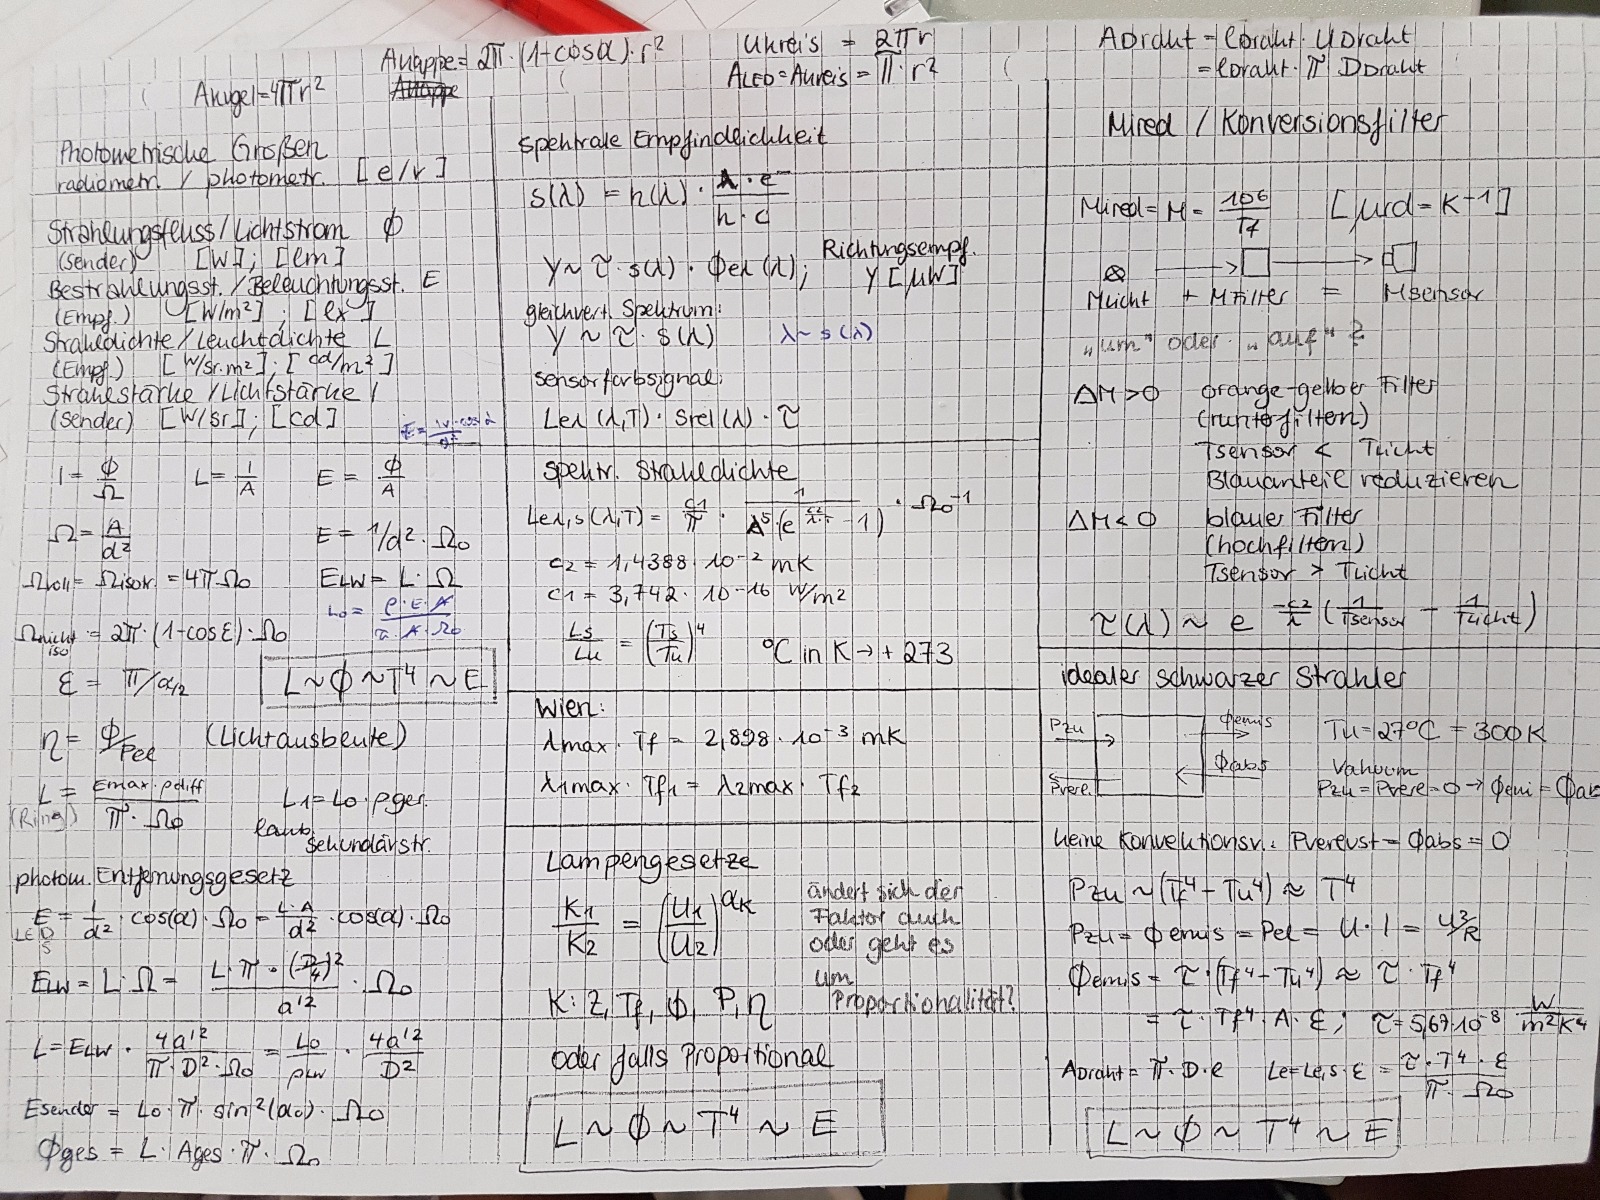 AKappe = 2π·(1+cosα)·r²
AKugel = 4πr²
UKreis = 2πr
ALED = AKreis = π·r²
ADraht = lDraht · UDraht
= lDraht · π DDraht
Photometrische Größen
radiometr. / photometr. [e/v]
Strahlungsfluss/Lichtstrom Φ
(Sender) [W]; [lm]
Bestrahlungsst./Beleuchtungsst. E
(Empf.) [W/m²]; [lx]
Strahldichte/Leuchtdichte L
(Empf.) [W/sr·m²]; [cd/m²]
Strahlstärke/Lichtstärke I
(Sender) [W/sr]; [cd]
I = Φ/Ω L = I/A E = Φ/A
Ω = A/d² E = I/d² · Ω0
Ωvoll = Ωisotr. = 4π·Ω0 ELW = L·Ω
L0 = ρ·E·A / π·A·Ω0
Ωnicht iso = 2π·(1-cosε)·Ω0
ε = π/α/2 L ~ Φ ~ T⁴ ~ E
η = Φ/Pel (Lichtausbeute)
L = Emax·ρdiff / π·Ω0
(Ring)
L1 = L0·ρges.
Sekundärstr.
photom. Entfernungsgesetz
E = I/d² · cos(α)·Ω0 = L·A/d² · cos(α)·Ω0
LEDs
ELW = L·Ω = L·π·(D/4)² / a'² · Ω0
L = ELW · 4a'² / π·D²·Ω0 = L0/ρLW · 4a'²/D²
Esender = L0·π·sin²(α0)·Ω0
Φges = L·Ages·π·Ω0
spektrale Empfindlichkeit
s(λ) = η(λ) · λ·e⁻ / h·c
Richtungsempf.
Y ~ τ·s(λ)·Φeλ(λ); Y[μW]
gleichvert. Spektrum:
Y ~ τ·s(λ) λ ~ s(λ)
Sensorfarbsignal:
Leλ(λ,T)·Srel(λ)·τ
spektr. Strahldichte
Leλ,s(λ,T) = c1/π · 1 / λ⁵·(e^(c2/λ·T) -1) · Ω0⁻¹
c2 = 1,4388·10⁻² mK
c1 = 3,742·10⁻¹⁶ W/m²
Ls/Lu = (Ts/Tu)⁴ °C in K → + 273
Wien:
λmax · Tf = 2,898·10⁻³ mK
λ1max · Tf1 = λ2max · Tf2
Lampengesetze
K1/K2 = (U1/U2)^αK
ändert sich der
Faktor auch
oder geht es
um
Proportionalität?
K: Z, Tf, Φ, P, η
oder falls Proportional
L ~ Φ ~ T⁴ ~ E
Mired / Konversionsfilter
Mired = M = 10⁶/Tf [μrd = K⁻¹]
MLicht + MFilter = MSensor
„um" oder „auf"?
ΔM>0 orange-gelber Filter
(runterfiltern)
Tsensor < TLicht
Blauanteil reduzieren
ΔM<0 blauer Filter
(hochfiltern)
Tsensor > TLicht
τ(λ) ~ e^(-c2/λ (1/Tsensor - 1/TLicht))
idealer schwarzer Strahler
Pzu Φemis
Φabs
Pverl.
Tu = 27°C = 300K
Vakuum
Pzu = Pverl = 0 → Φemi = Φab
keine Konvektionsv.: Pverlust = Φabs = 0
Pzu ~ (Tf⁴-Tu⁴) ≈ T⁴
Pzu = Φemis = Pel = U·I = U²/R
Φemis = τ·(Tf⁴-Tu⁴) ≈ τ·Tf⁴
= τ·Tf⁴·A·ε; τ = 5,67·10⁻⁸ W/m²K⁴
ADraht = π·D·l Le = Le,s·ε = τ·T⁴·ε / π·Ω0
L ~ Φ ~ T⁴ ~ E